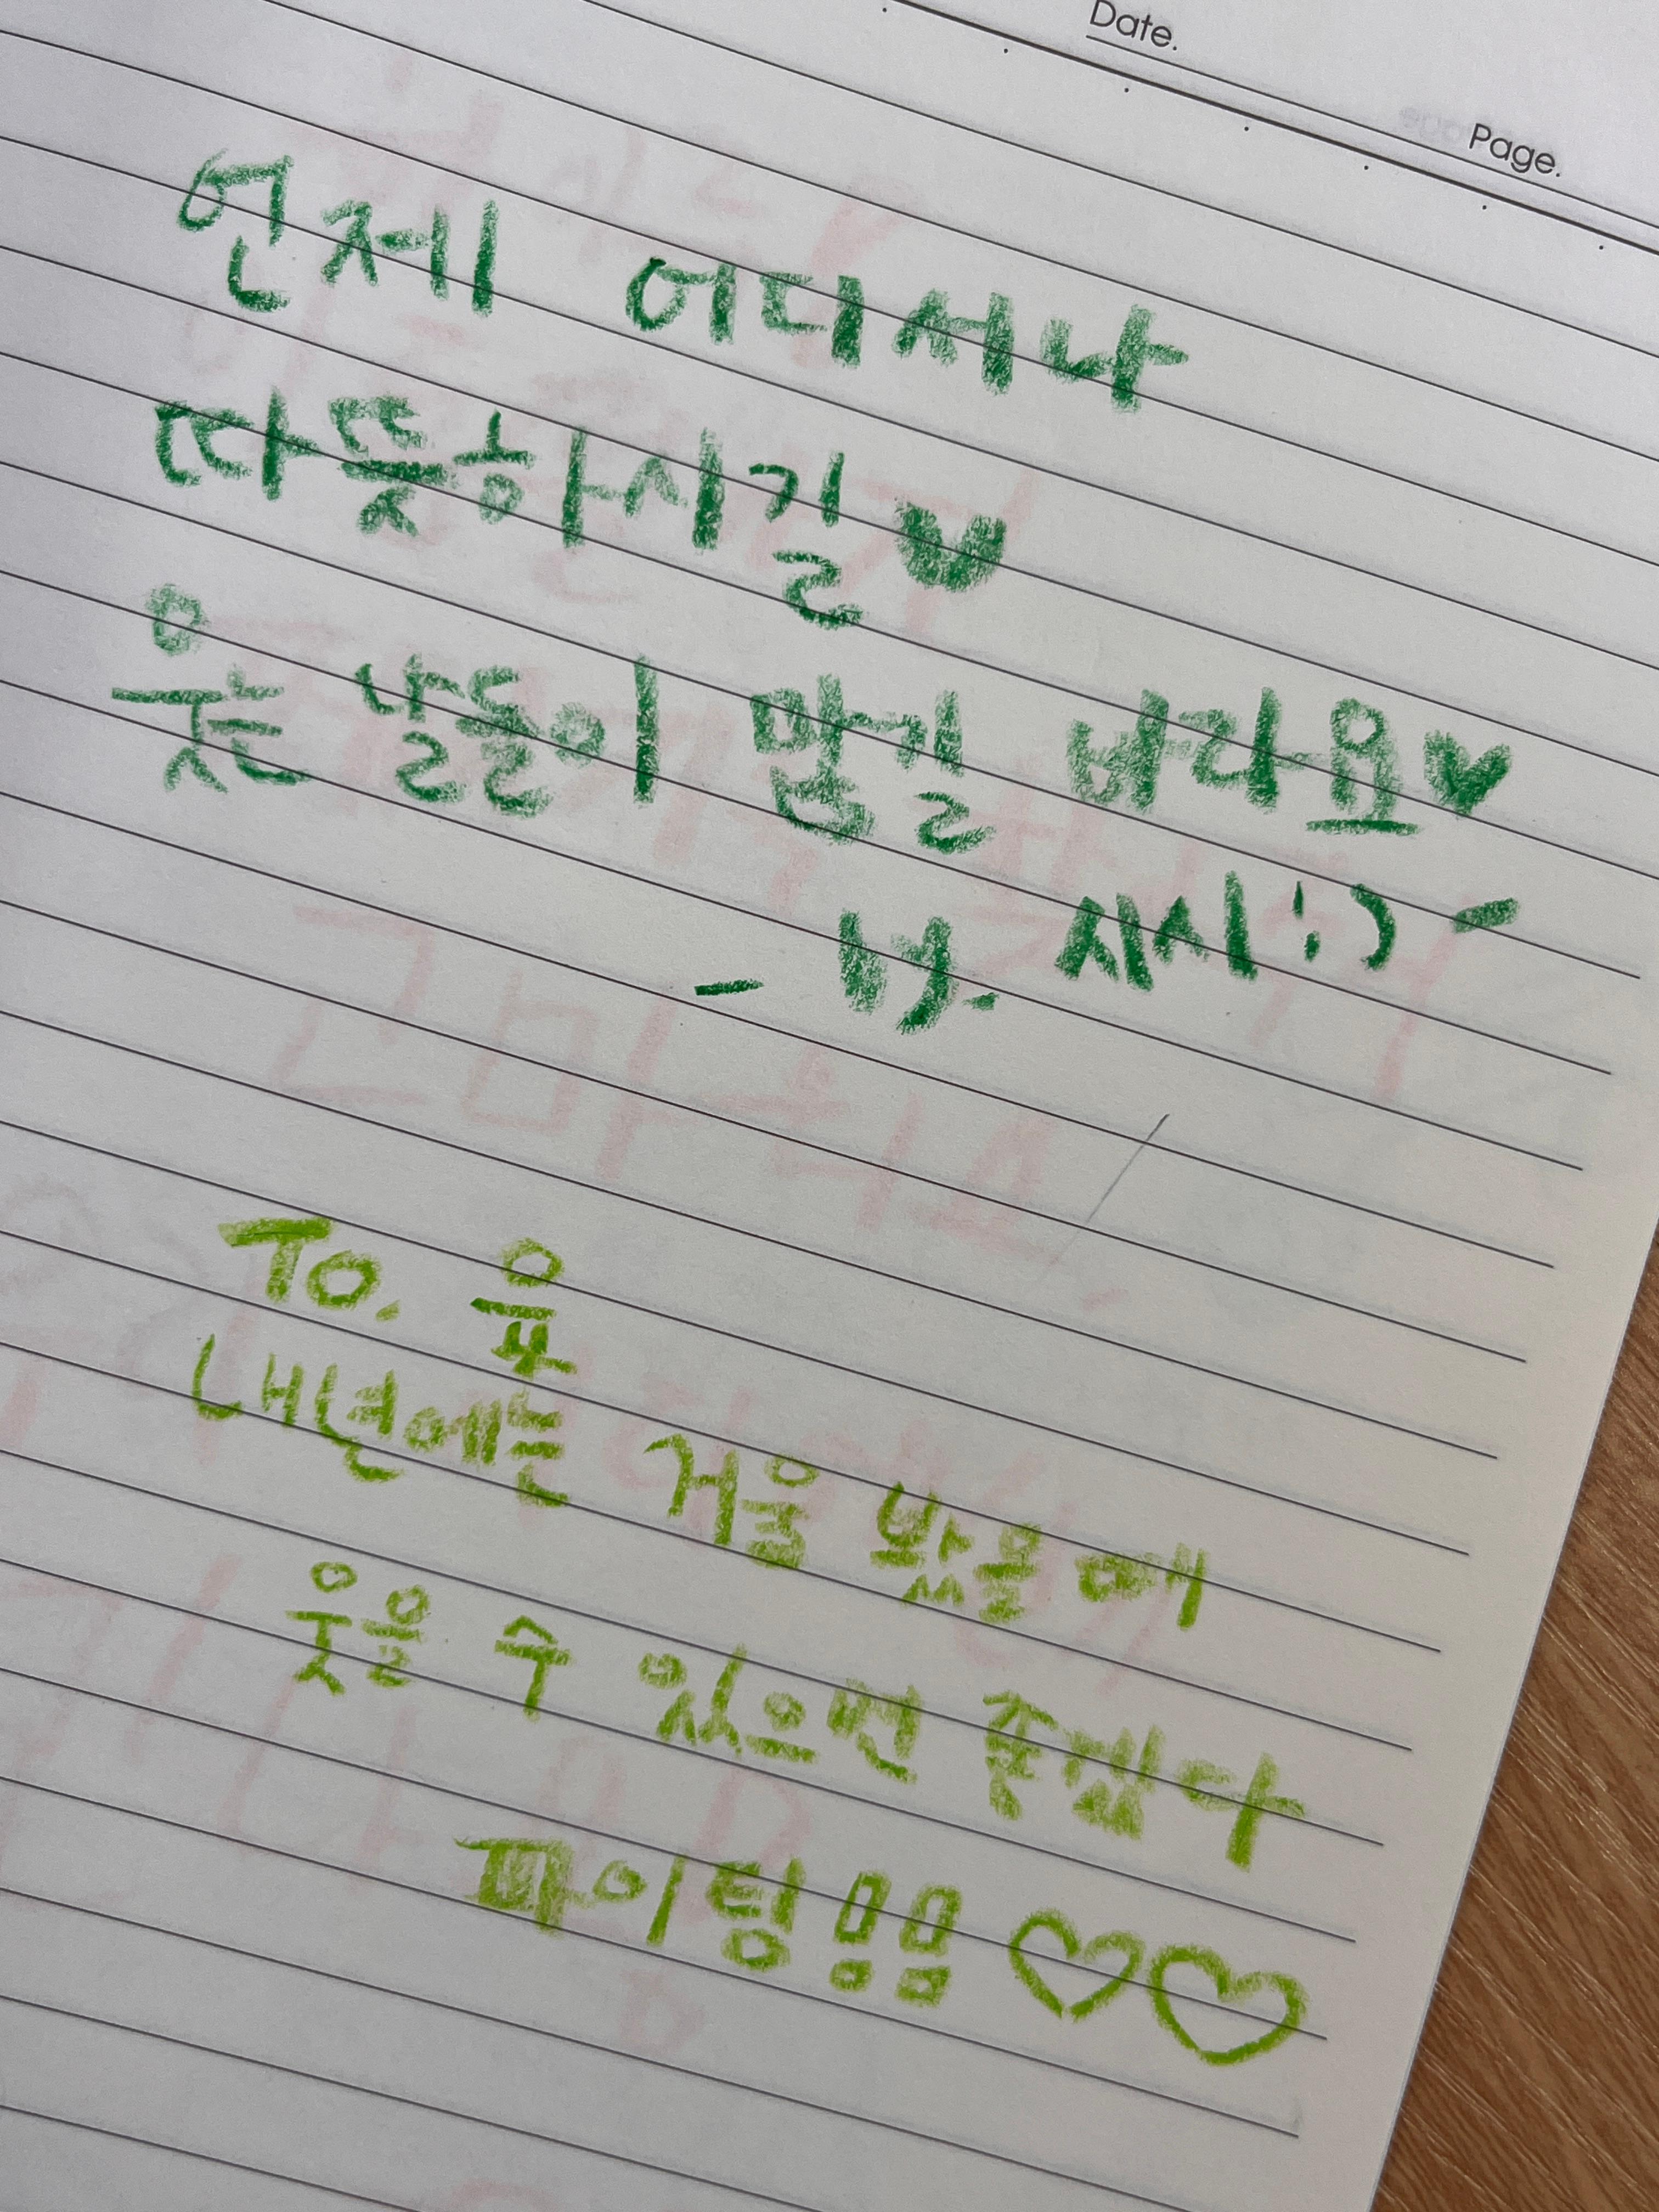 Date.
Page.
언제 어디서나
따뜻하시길♥
웃는 날들이 많길 바라요♥
씨 :) -
To. 윺
내년에는 거울 봤을 때
웃을 수 있으면 좋겠다
파이팅!! ♡♡